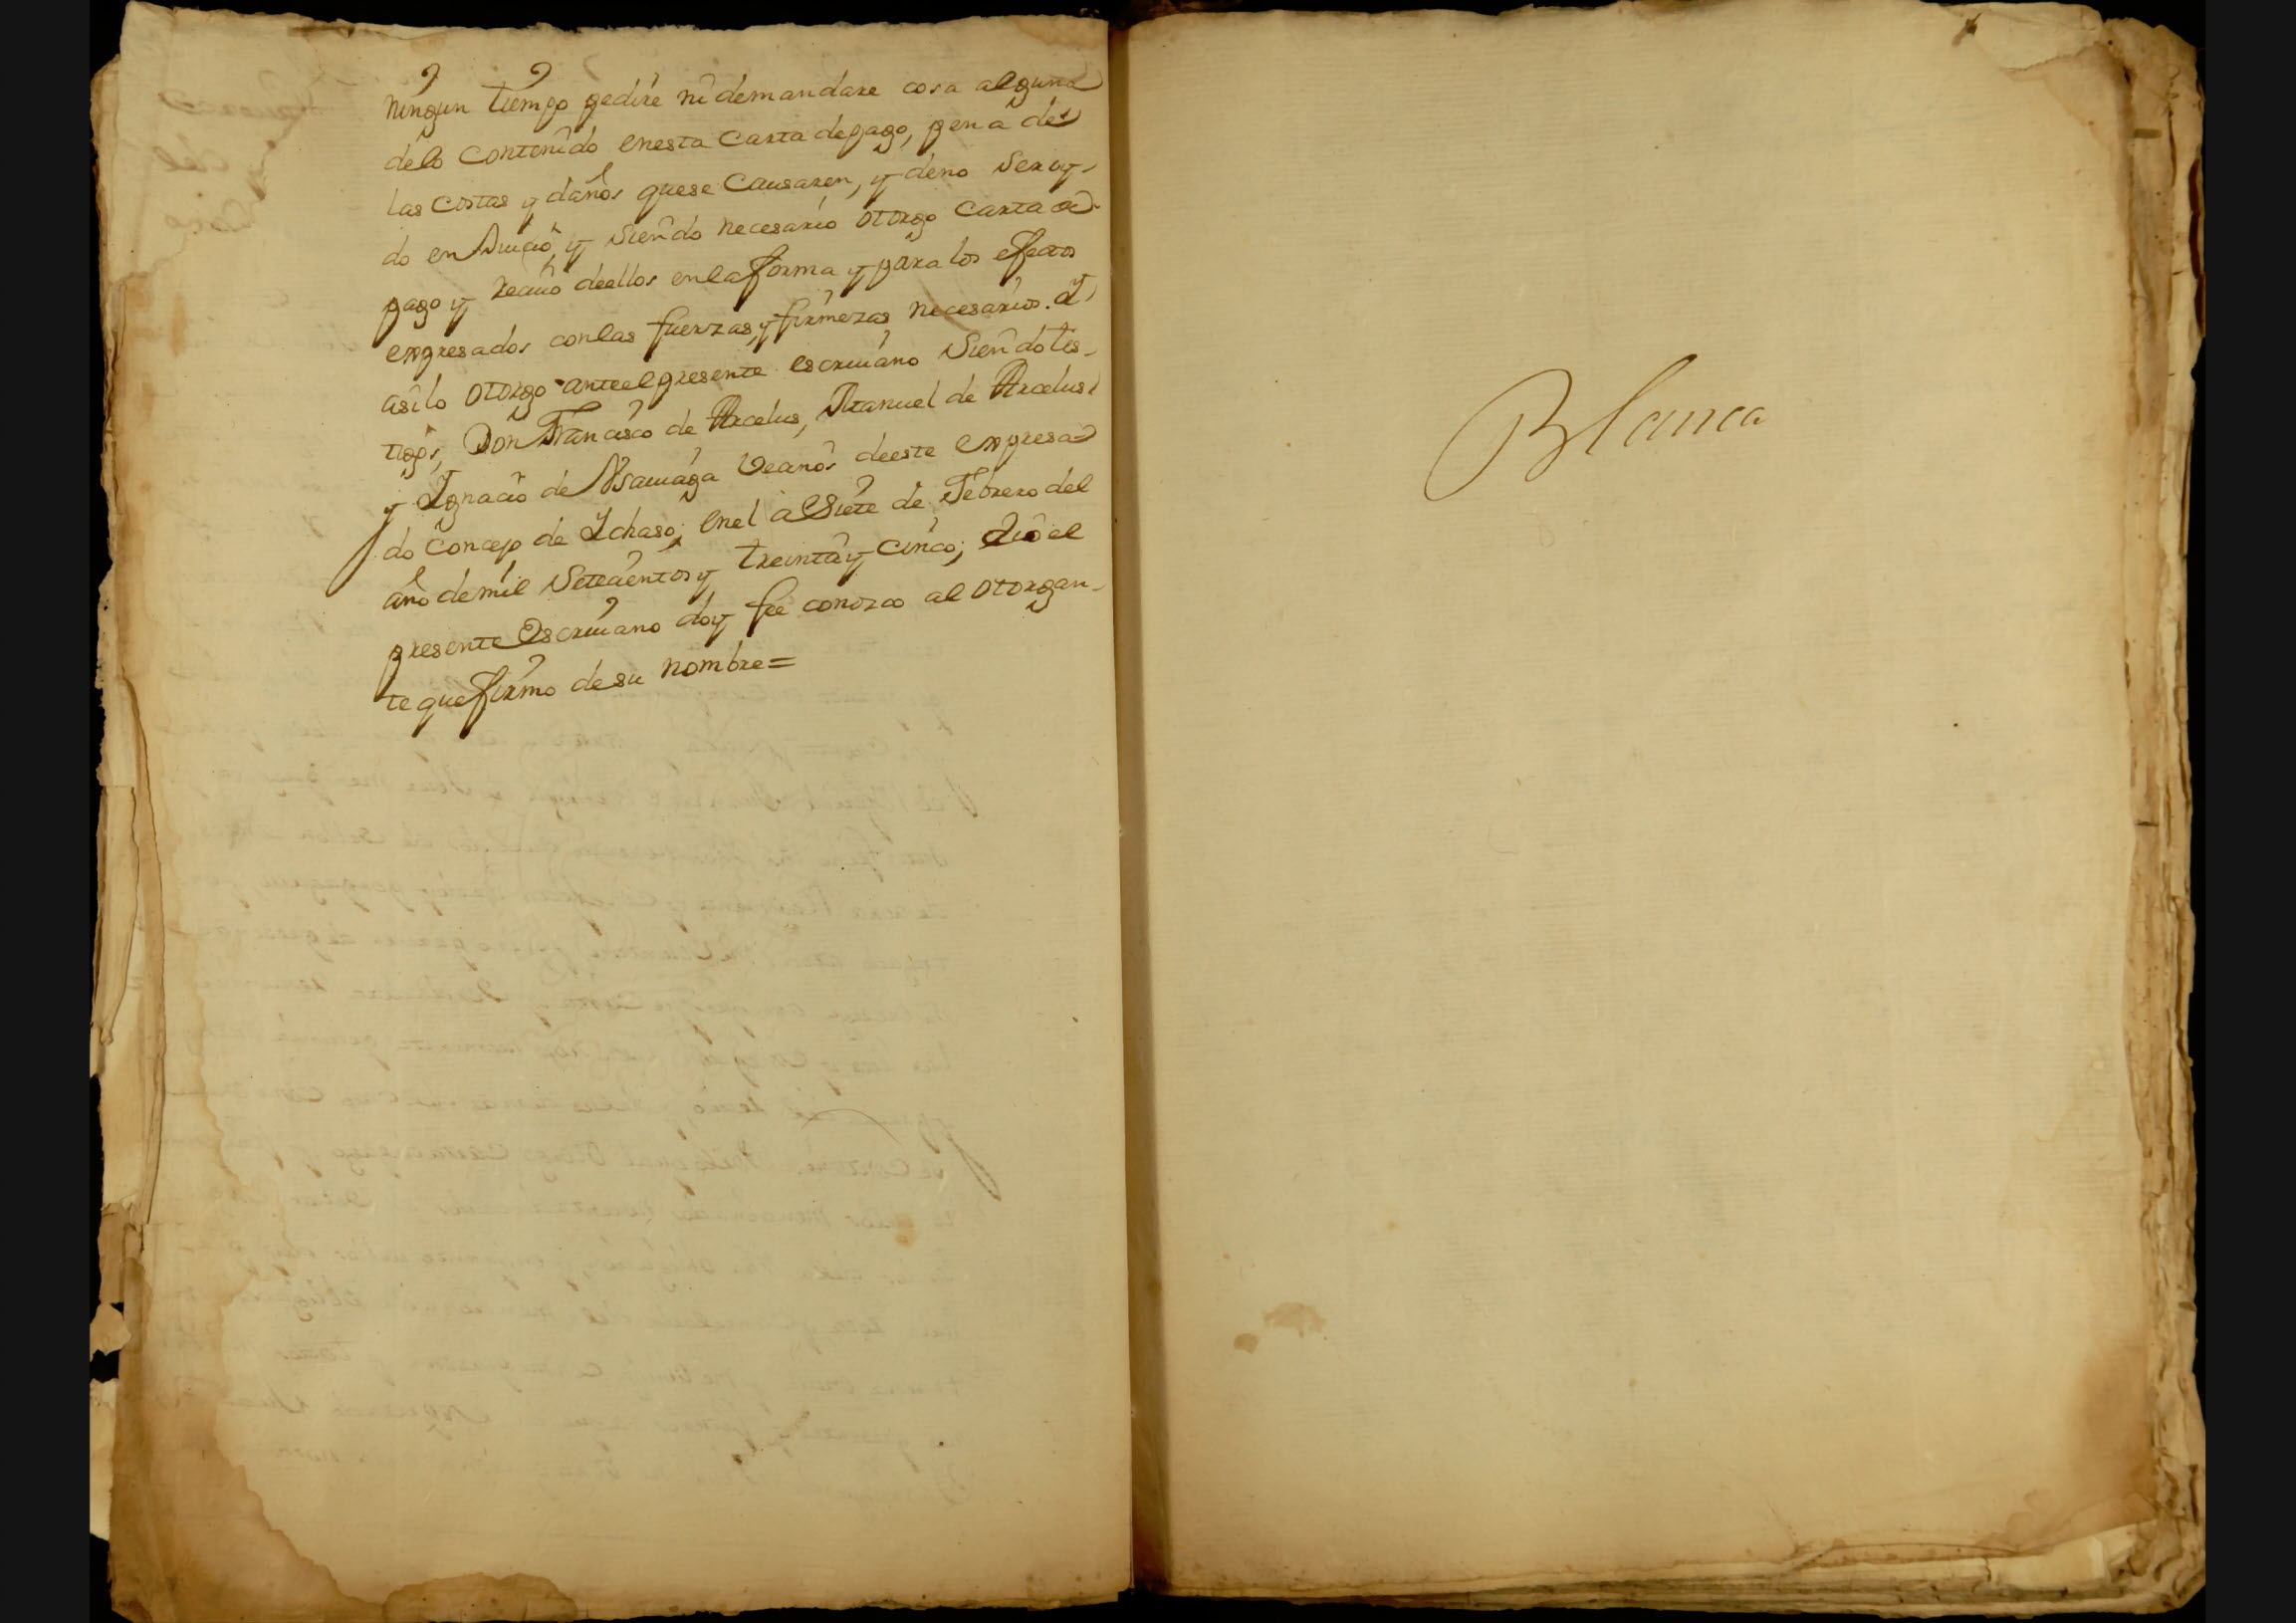 ningun tiempo pedire ni demandare cosa alguna
delo Contenido enesta Carta depago, pena de
las costas y daños quese Causaren, y deno ser oy-
do en Juicio, y siendo necesario otorgo Carta de
pago y reciuo deellos enlaforma y para los efectos
expresados conlas fuerzas, y firmezas necesarios. Y
asilo otorgo anteel presente escriuano siendo tes-
tigos, Don Francisco de Arcelus, Manuel de Arcelus
y Ygnacio de Vecinos deeste expresa-
do Concejo de Ychaso, enel a Siete de Febrero del
año demil Setecientos y treinta y cinco; Yo el
presente Escriuano doy fee conozco al otorgan-
te que firmo desu nombre=
Blanca